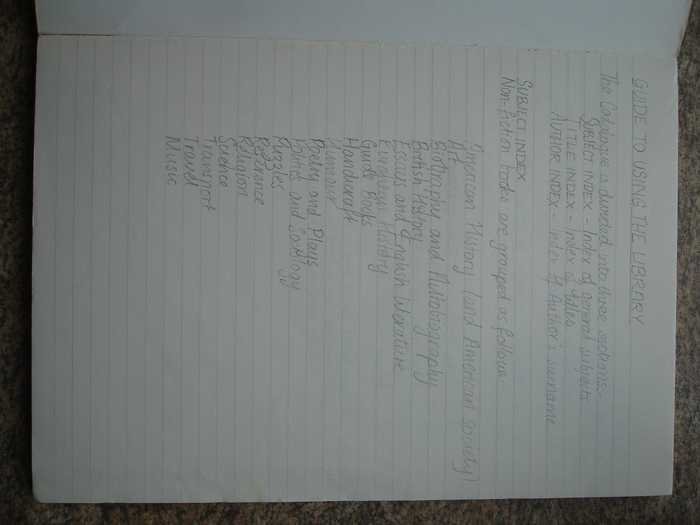 GUIDE TO USING THE LIBRARY
The Catalogue is divided into three sections:-
SUBJECT INDEX - Index of general subjects
TITLE INDEX - Index of titles
AUTHOR INDEX - Index of Author's surname
SUBJECT INDEX
Non-fiction books are grouped as follows
American History (and American Society)
Art
Biography and Autobiography
British History
Essays and English Literature
European History
Guide Books
Handicraft
Humour
Poetry and Plays
Politics and Sociology
Puzzles
Reference
Religion
Science
Transport
Travel
Music